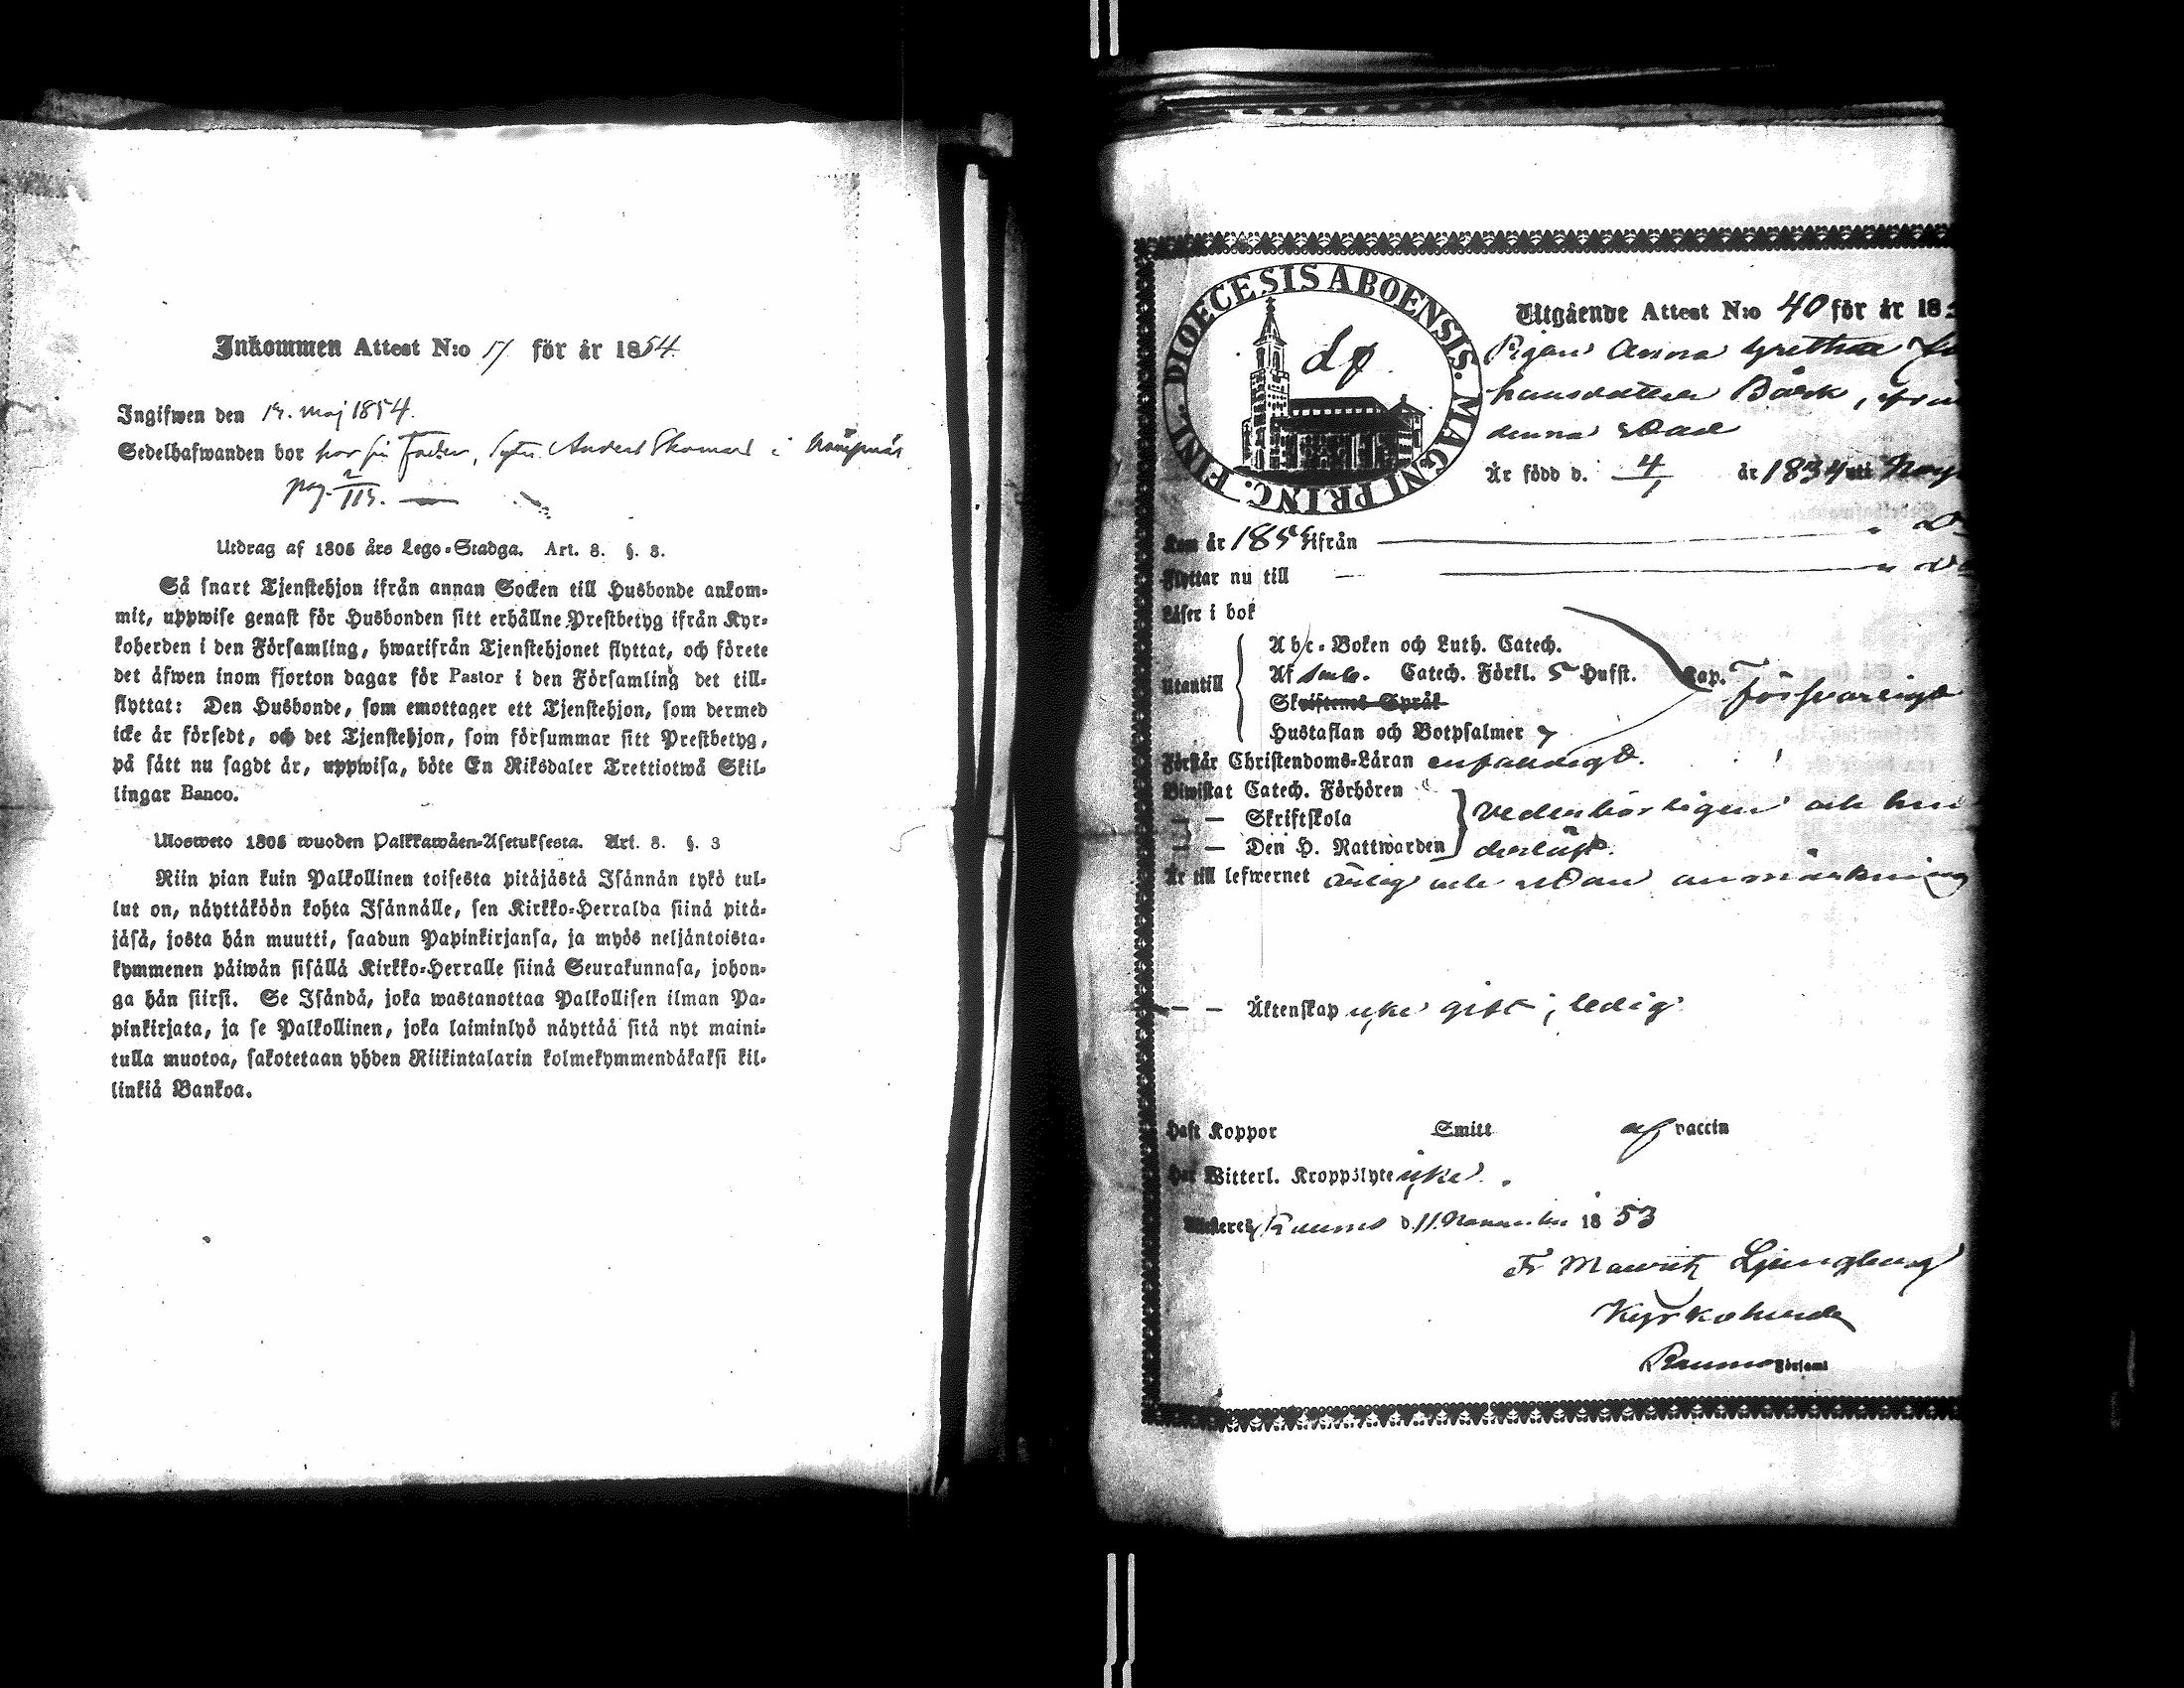 Inkommen Attest N:o 17 för år 1854
Ingifwen den 14. Maj 1854.
Sedelhafwanden bor hos sin Fader, Anders i
pag. 2/115.
Utdrag af 1805 års Lego-Stadga. Art. 8. §. 3.
Så snart Tjenstehjon ifrån annan Socken till Husbonde ankom-
mit, uppwise genast för Husbonden sitt erhållne Prestbetyg ifrån Kyr-
koherden i den Församling, hwarifrån Tjenstehjonet flyttat, och förete
det äfwen inom fjorton dagar för Pastor i den Församling det till-
flyttat: Den Husbonde, som emottager ett Tjenstehjon, som dermed
icke är försedt, och det Tjenstehjon, som försummar sitt Prestbetyg,
på sätt nu sagdt är, uppwisa, böte En Riksdaler Trettiotwå Skil-
lingar Banco.
Ulosweto 1805 wuoden Palkkawäen-Asetuksesta. Art. 8. §. 3
Niin pian kuin Palkollinen toisesta pitäjästä Isännän tykö tul-
lut on, näyttäköön kohta Isännälle, sen Kirkko-Herralda siinä pitä-
jäsä, josta hän muutti, saadun Papinkirjansa, ja myös neljäntoista-
kymmenen päiwän sisällä Kirkko-Herralle siinä Seurakunnasa, johon-
ga hän siirsi. Se Isändä, joka wastanottaa Palkollisen ilman Pa-
pinkirjata, ja se Palkollinen, joka laiminlyö näyttää sitä nyt maini-
tulla muotoa, sakotetaan yhden Riikintalarin kolmekymmendäkaksi kil-
linkiä Bankoa.
DIOECESIS ABOENSIS. MAGNI PRINC. FINL.
Utgående Attest N:o 40 för år 18
Pigan Anna Grettha
hansdotter Bärk, ifrån
denna Stad
Är född d. 4/1 år 1834 uti
Kom år 1853 ifrån
Flyttar nu till
Läser i bok
Utantill
Abc-Boken och Luth. Catech.
Af Catech. Förkl. 5 Hufst. Cap.
Skriftenes Språk
försvarligt
Hustaflan och Botpsalmer 7
Förstår Christendoms-Läran enfaldigt.
Biwistat Catech. Förhören
— — Skriftskola
— — Den H. Nattwarden
vederbörligen och
Är till lefwernet ärlig och utan anmärkning
— — Äktenskap icke gift; ledig
Haft Koppor Smitt af vaccin
Har Witterl. Kroppslyte icke.
Raumo d. 11. November 1853
Fr Mauritz Ljungberg
Kyrkoherde
Raumo Församl